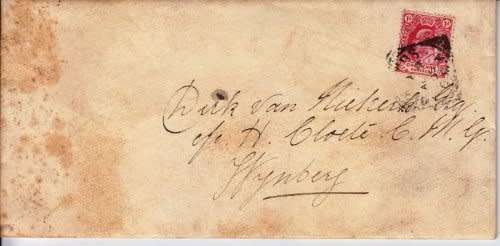 Dirk van Niekerk Esq.
c/o H. Cloete C.M.G.
Wynberg